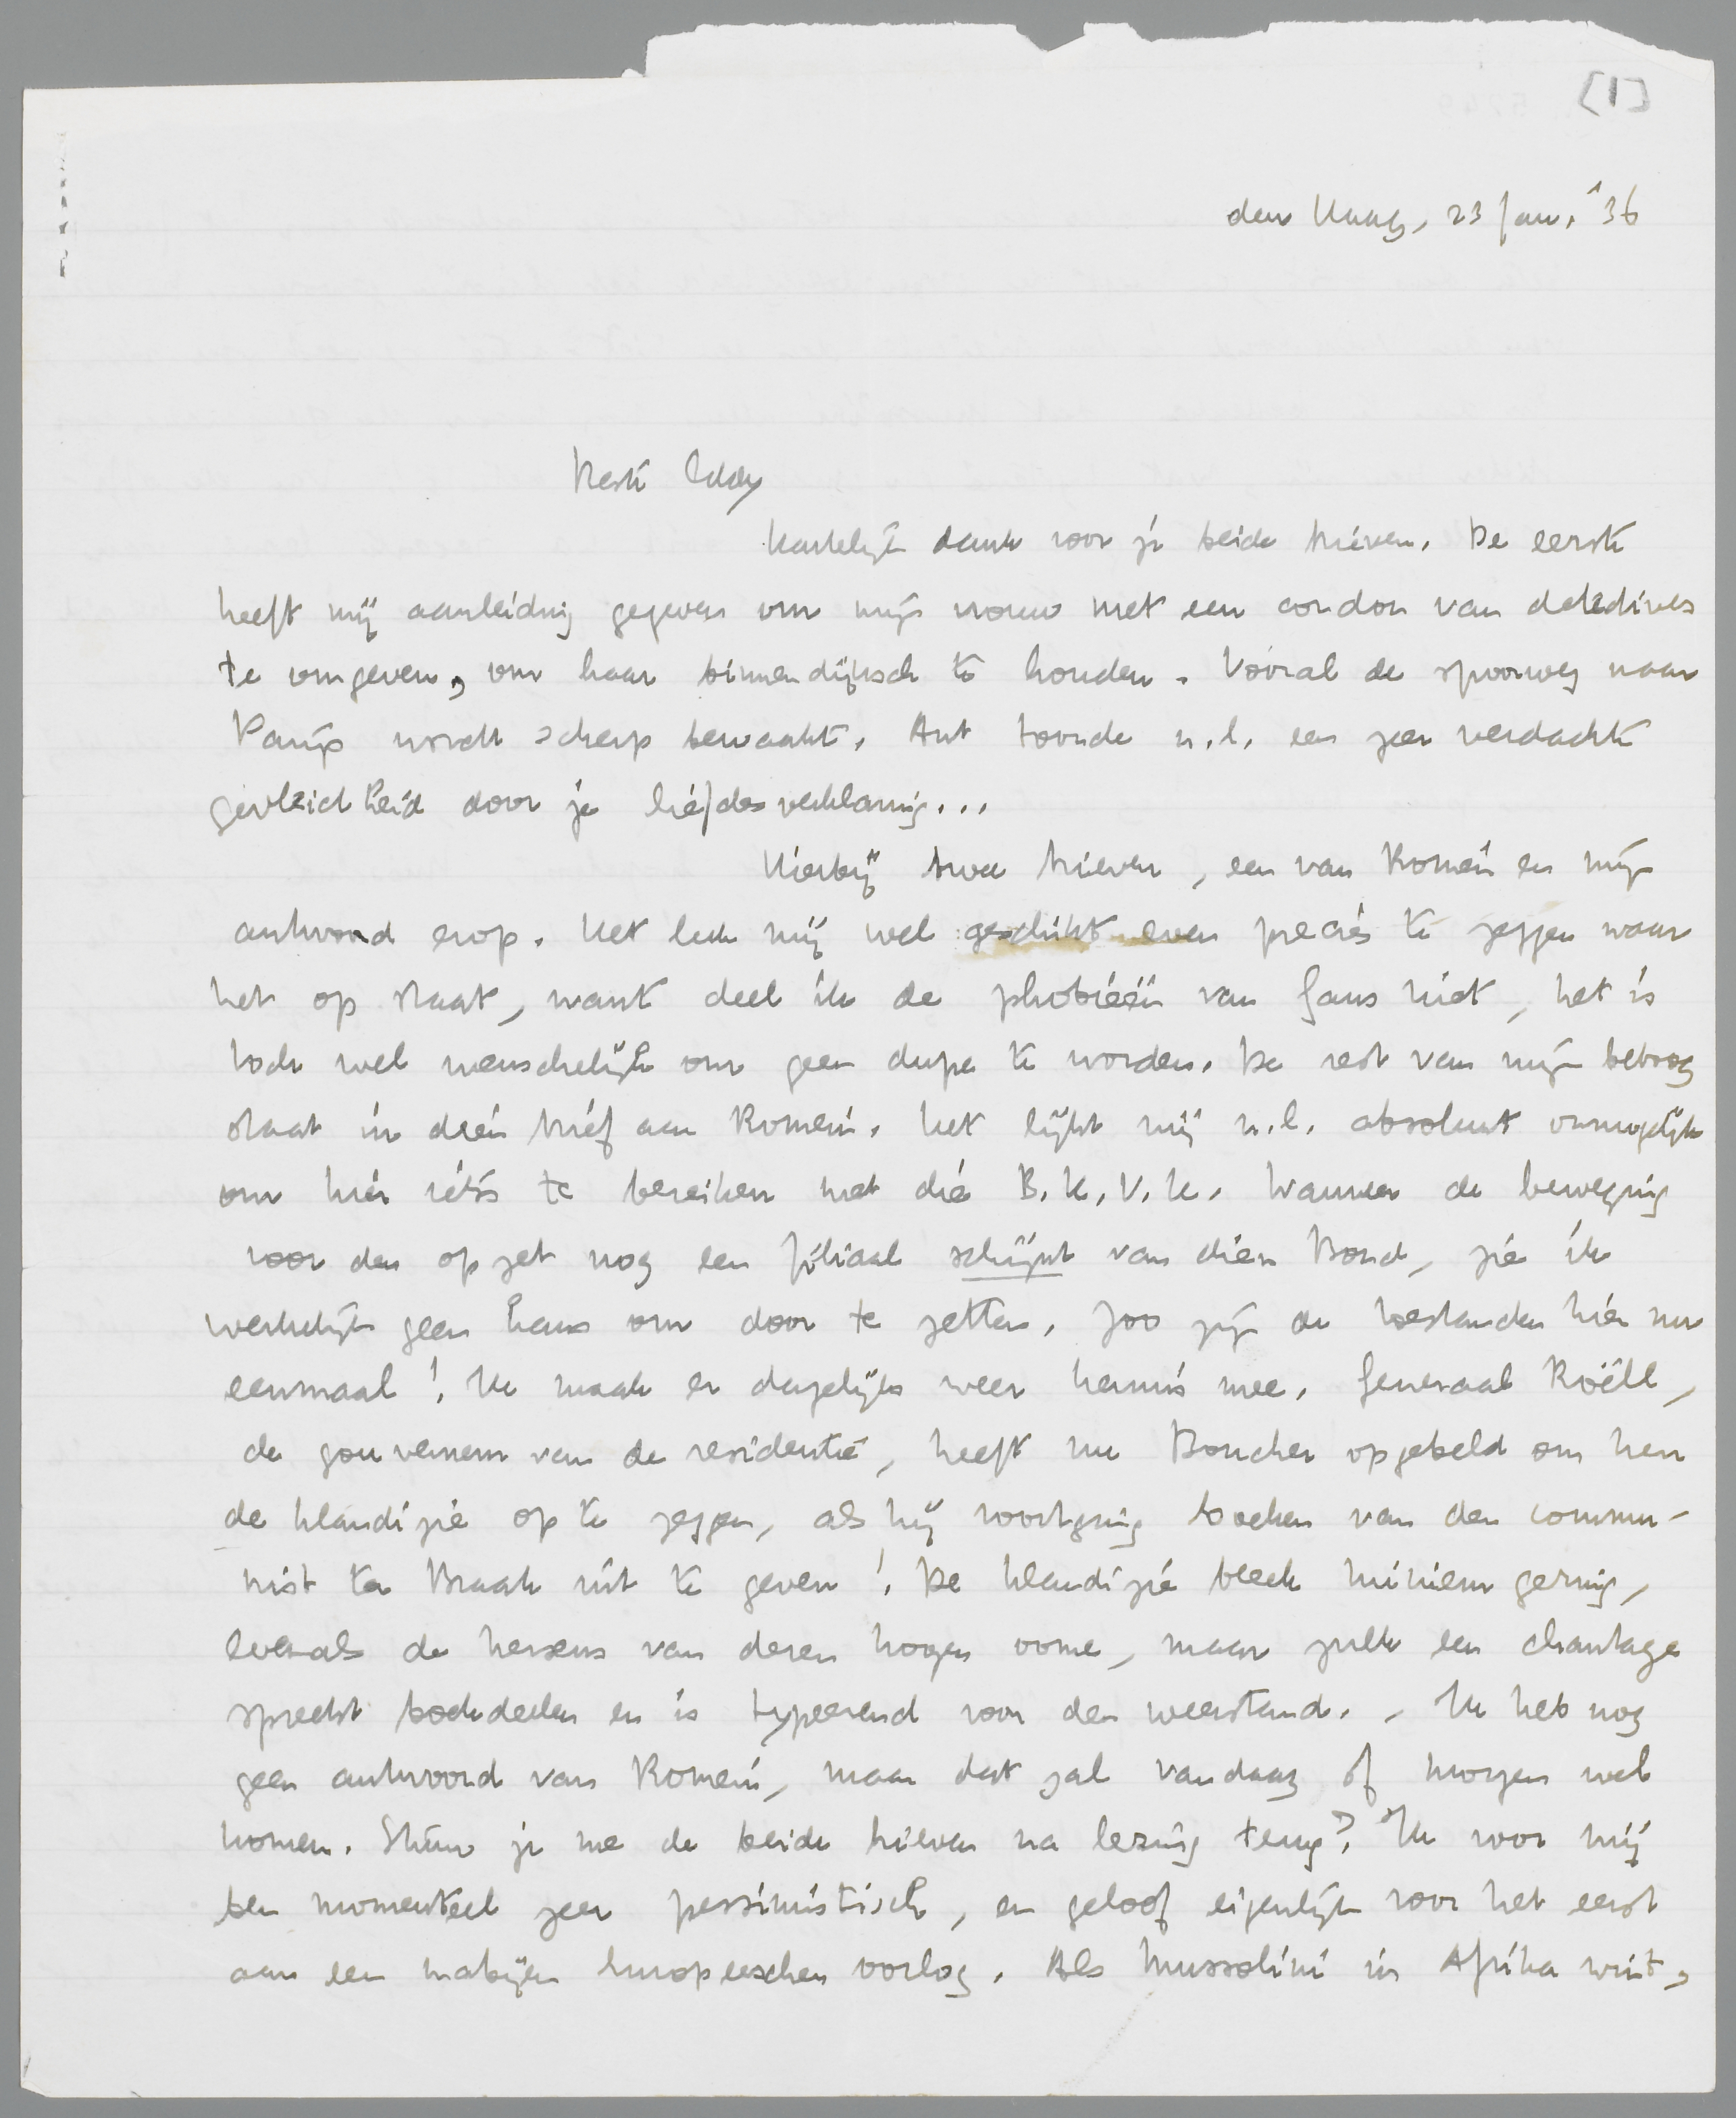 [1]
den Haag, 23 Jan. '36
Beste Eddy
Hartelijk dank voor je beide brieven. De eerste
heeft mij aanleiding gegeven om mijn vrouw met een cordon van detectives
te omgeven, om haar binnendijksch te houden. Vooral de spoorweg naar
Parijs wordt scherp bewaakt. Ant toonde n.l. een zeer verdachte
gevleidheid door je liefdesverklaring...
Hierbij twee brieven, een van Romein en mijn
antwoord erop. Het leek mij wel geschikt even precies te zeggen waar
het op staat, want deel ik de phobieën van Gans niet, het is
toch wel menschelijk om geen dupe te worden. De rest van mijn betoog
staat in dien brief aan Romein. Het lijkt mij n.l. absoluut onmogelijk
om hier iets te bereiken met die B.K.V.K. Wanneer de beweging
voor den opzet nog een filiaal schijnt van dien Bond, zie ik
werkelijk geen kans om door te zetten. Zoo zijn de toestanden hier nu
eenmaal! Ik maak er dagelijks weer kennis mee. Generaal Roëll,
de gouverneur van de residentie, heeft nu Boucher opgebeld om hem
de klandizie op te zeggen, als hij voortging boeken van den commu-
nist ter Braak uit te geven! De klandizie bleek miniem gering,
evenals de hersens van dezen hoogen oome, maar zulk een chantage
spreekt boekdeelen en is typeerend voor den weerstand. - Ik heb nog
geen antwoord van Romein, maar dat zal vandaag of morgen wel
komen. Stuur je me de beide brieven na lezing terug? Ik voor mij
ben momenteel zeer pessimistisch, en geloof eigenlijk voor het eerst
aan een nabijen Europeeschen oorlog. Als Mussolini in Afrika wint,